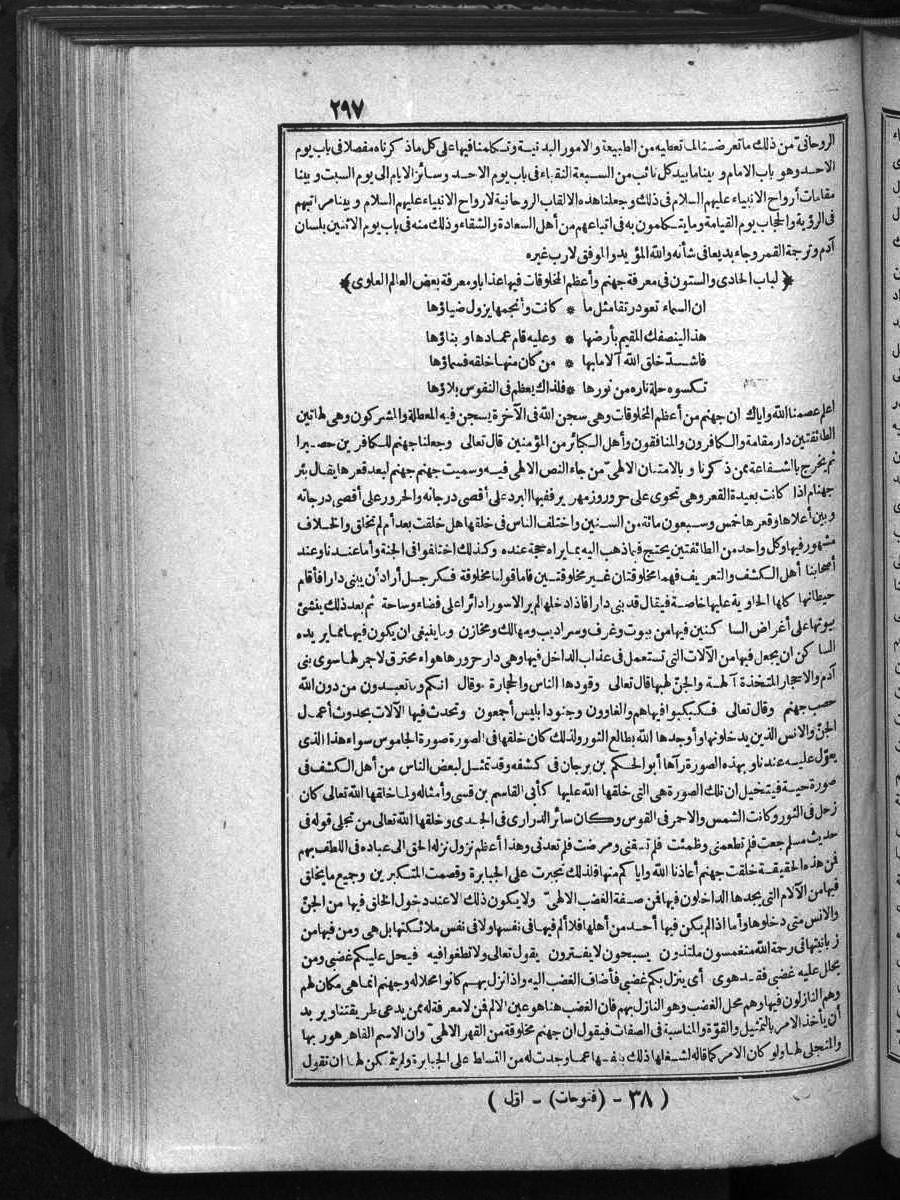 ٢٩٧
الروحانى من ذلك ما تعرضنا لما تعطيه من الطبيعة والامور البدنية وتكلمنا فيها على كل ما ذكرناه مفصلا فى باب يوم
الاحد وهو باب الامام وبينا ما بيد كل نائب من السبعة النقباء فى باب يوم الاحد وسائر الايام الى يوم السبت وبينا
مقامات أرواح الانبياء عليهم السلام فى ذلك وجعلنا هذه الالقاب الروحانية لارواح الانبياء عليهم السلام وبينا مراتبهم
فى الرؤية والحجاب يوم القيامة وما يتكلمون به فى اتباعهم من أهل السعادة والشقاء وذلك منه فى باب يوم الاثنين بلسان
آدم وترجمة القمر وجاء بديعا فى شأنه والله المؤيد والموفق لارب غيره
﴿ لباب الحادى والستون فى معرفة جهنم وأعظم المخلوقات فيها عذابا ومعرفة بعض العالم العلوى ﴾
ان السماء تعود رتقا مثل ما * كانت وأنجمها يزول ضياؤها
هذا لينصفك المقيم بأرضها * وعليه قام عمادها وبناؤها
فاشد خلق الله آلاما بها * من كان منها خلقه فسماؤها
تكسوه حلة ناره من نورها * فلذاك يعظم فى النفوس بلاؤها
اعلم عصمنا الله واياك ان جهنم من أعظم المخلوقات وهى سجن الله فى الآخرة يسجن فيه المعطلة والمشركون وهى لهاتين
الطائفتين دار مقامة والكافرون والمنافقون وأهل الكبائر من المؤمنين قال تعالى وجعلنا جهنم للكافرين حصيرا
ثم يخرج بالشفاعة ممن ذكرنا وبالامتنان الالهى من جاء النص الالهى فيه وسميت جهنم جهنم لبعد قعرها يقال بئر
جهنام اذا كانت بعيدة القعر وهى تحوى على حرور وزمهرير ففيها البرد على أقصى درجاته والحرور على أقصى درجاته
وبين أعلاها وقعرها خمس وسبعون مائة من السنين واختلف الناس فى خلقها هل خلقت بعد أم لم تخلق والخلاف
مشهور فيها وكل واحد من الطائفتين يحتج فيما ذهب اليه بما يراه حجة عنده وكذلك اختلفوا فى الجنة وأما عندنا وعند
أصحابنا أهل الكشف والتعريف فهما مخلوقتان غير مخلوقتين فاما قولنا مخلوقة فكرجل أراد أن يبنى دارا فأقام
حيطانها كلها الحاوية عليها خاصة فيقال قد بنى دارا فاذا دخلها لم ير الاسورا دائرا على فضاء وساحة ثم بعد ذلك ينشئ
بيوتها على أغراض الساكنين فيها من بيوت وغرف وسراديب ومهالك ومخازن وما ينبغى ان يكون فيها مما يريده
الساكن ان يجعل فيها من الآلات التى تستعمل فى عذاب الداخل فيها وهى دار حرورها هواء محترق لاجمر لها سوى بنى
آدم والاحجار المتخذة آلهة والجن لهبها قال تعالى وقودها الناس والحجارة وقال انكم وما تعبدون من دون الله
حصب جهنم وقال تعالى فكبكبوا فيها هم والغاوون وجنود ابليس أجمعون وتحدث فيها الآلات بحدوث أعمال
الجن والانس الذين يدخلونها وأوجدها الله بطالع الثور ولذلك كان خلقها فى الصورة صورة الجاموس سواء هذا الذى
يعول عليه عندنا وبهذه الصورة رآها أبو الحكم بن برجان فى كشفه وقد تمثل لبعض الناس من أهل الكشف فى
صورة حية فيتخيل ان تلك الصورة هى التى خلقها الله عليها كأبى القاسم بن قسى وأمثاله ولما خلقها الله تعالى كان
زحل فى الثور وكانت الشمس والاحمر فى القوس وكان سائر الدرارى فى الجدى وخلقها الله تعالى من تجلى قوله فى
حديث مسلم جعت فلم تطعمنى وظمئت فلم تسقنى ومرضت فلم تعدنى وهذا أعظم نزول نزله الحق الى عباده فى اللطف بهم
فمن هذه الحقيقة خلقت جهنم أعاذنا الله واياكم منها فلذلك تجبرت على الجبابرة وقصمت المتكبرين وجميع ما يخلق
فيها من الآلام التى يجدها الداخلون فيها فمن صفة الغضب الالهى ولا يكون ذلك الاعند دخول الخلق فيها من الجن
والانس متى دخلوها وأما اذا لم يكن فيها أحد من أهلها فلا ألم فيها فى نفسها ولا فى نفس ملائكتها بل هى ومن فيها من
زبانيتها فى رحمة الله منغمسون ملتذون يسبحون لا يفترون يقول تعالى ولا تطغوا فيه فيحل عليكم غضبى ومن
يحلل عليه غضبى فقد هوى أى ينزل بكم غضبى فأضاف الغضب اليه واذا نزل بهم كانوا محلا له وجهنم انما هى مكان لهم
وهم النازلون فيها وهم محل الغضب وهو النازل بهم فان الغضب هنا هو عين الالم فمن لا معرفة له ممن يدعى طريقتنا ويريد
أن يأخذ الامر بالتمثيل والقوة والمناسبة فى الصفات فيقول ان جهنم مخلوقة من القهر الالهى وان الاسم القاهر هو ربها
والمتجلى لها ولو كان الامر كما قاله لشغلها ذلك بنفسها عما وجدت له من التسلط على الجبابرة ولم يتمكن لها ان تقول
( ٣٨ - (فتوحات) - اوّل )